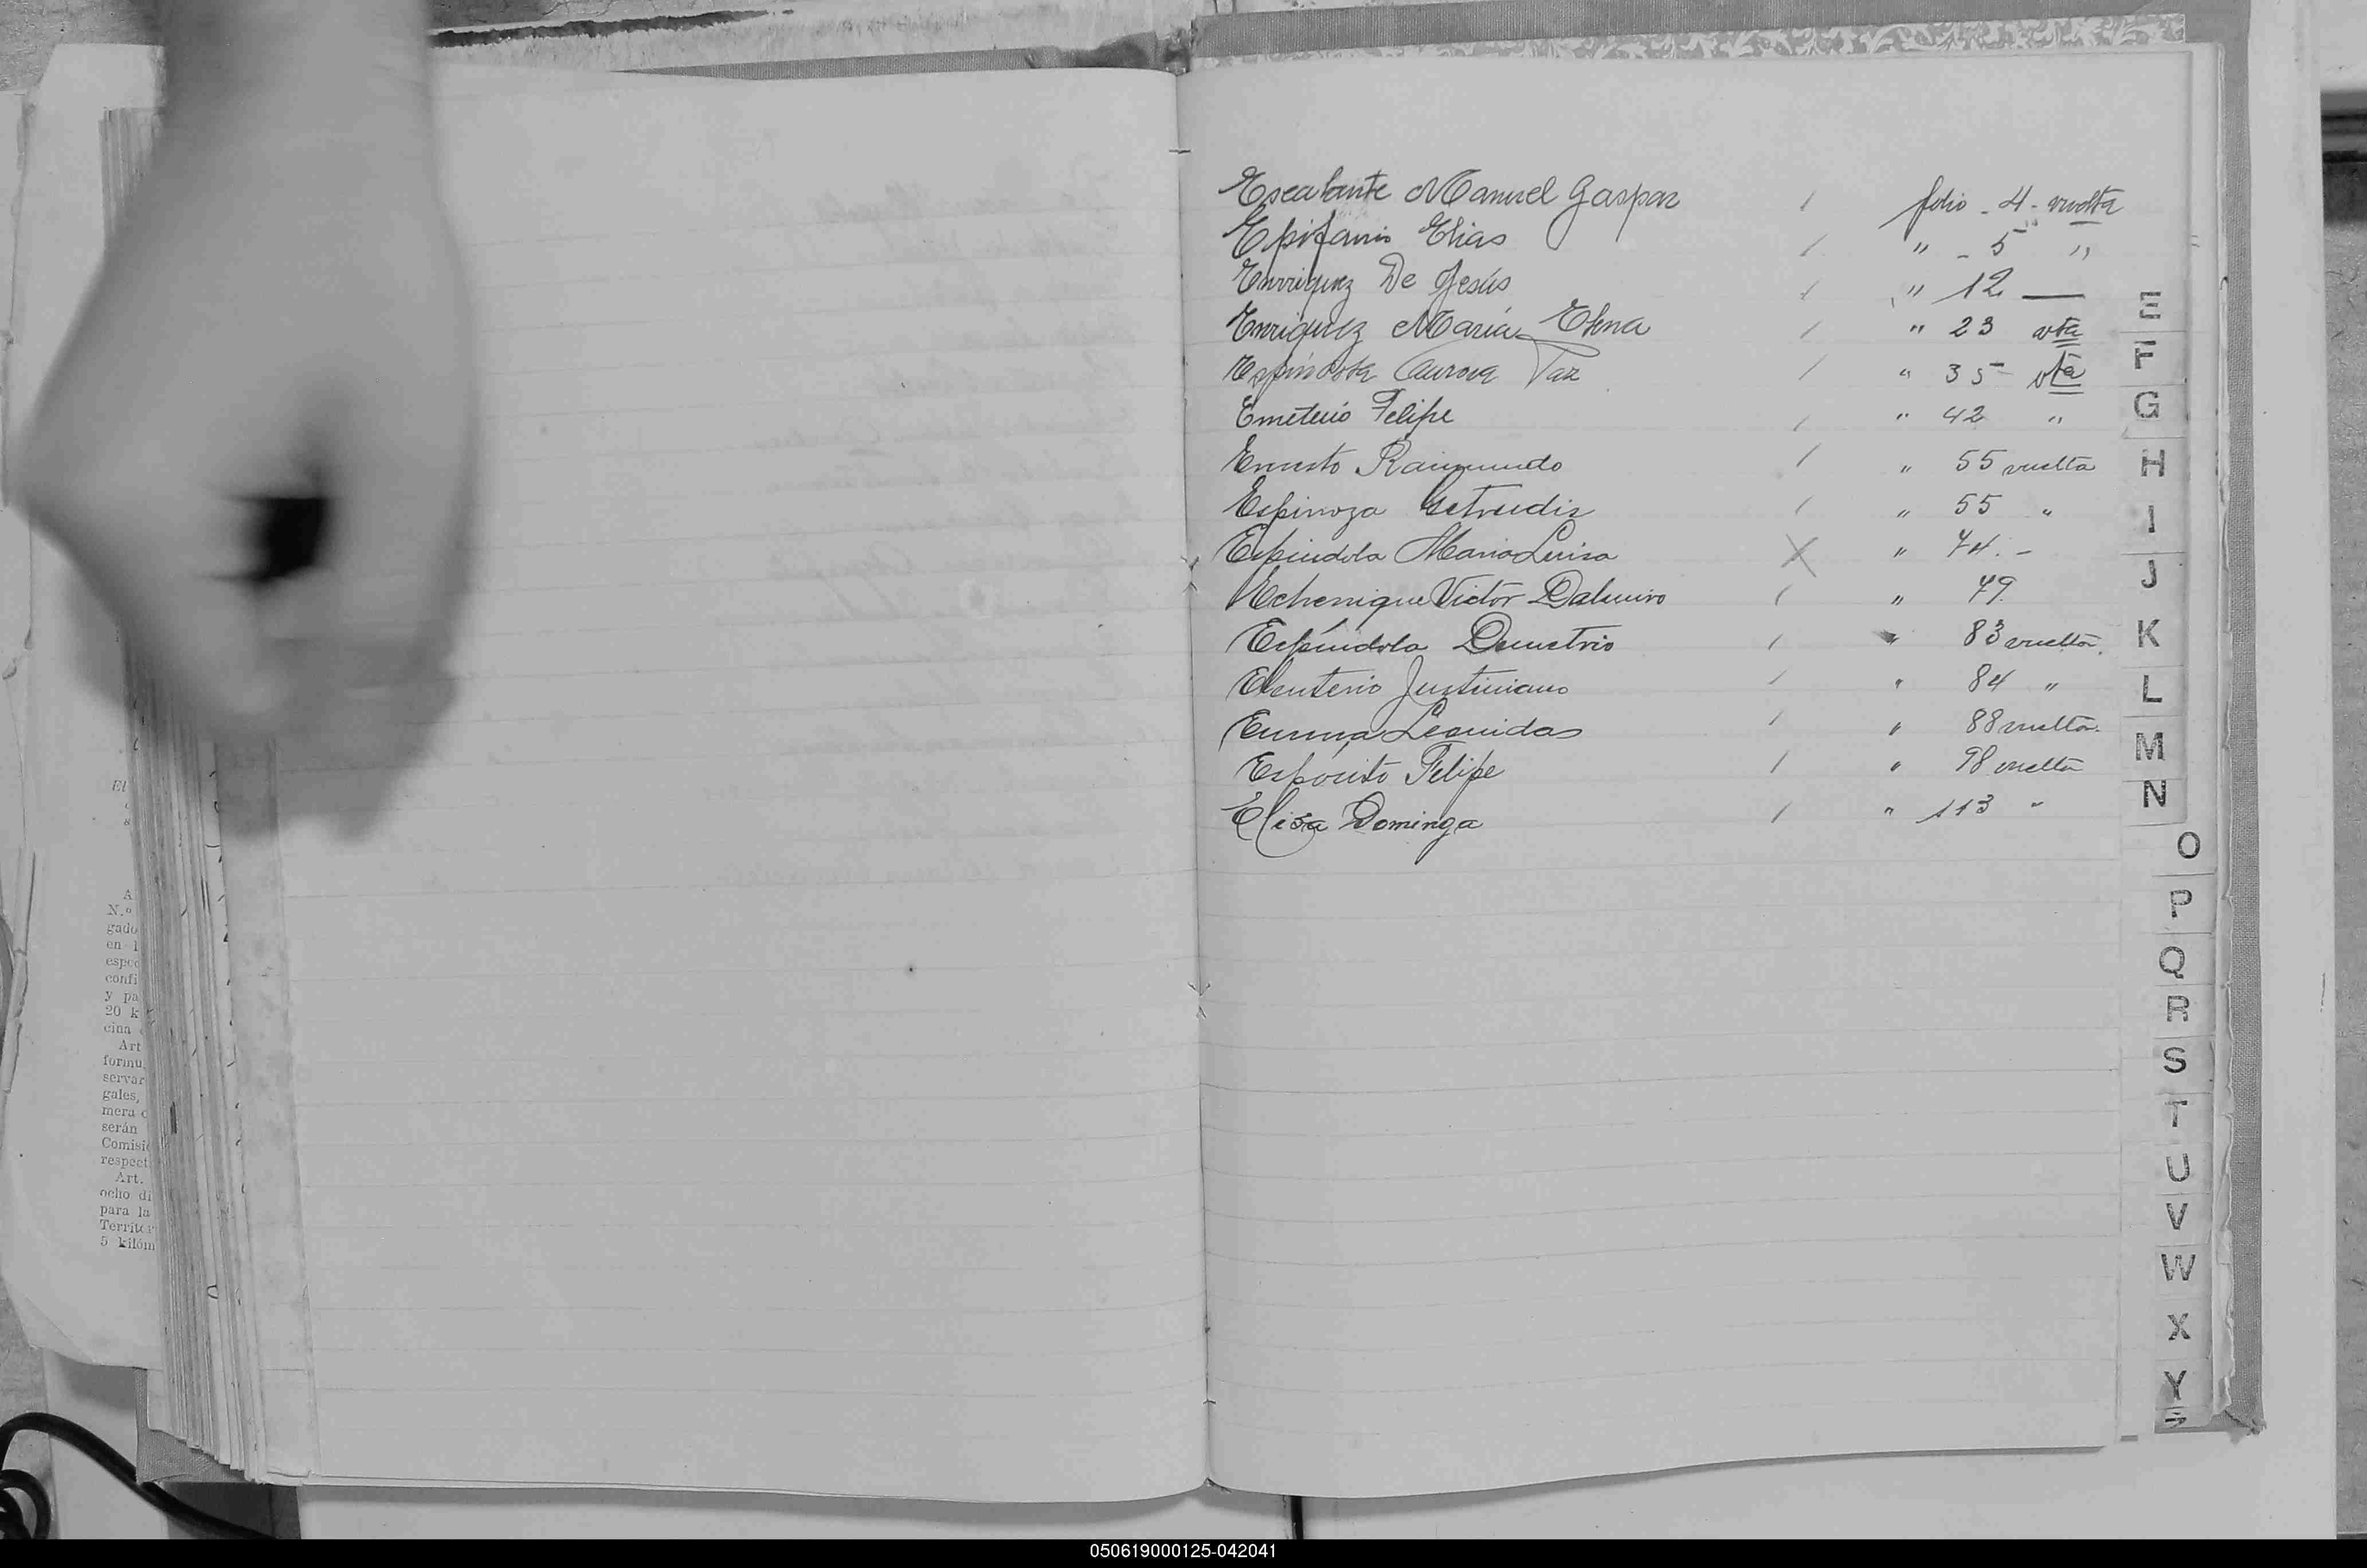 El
A
N.º
gado
en l
espec
confi
y pa
20 k
cina
Art
formu
servar
gales,
mera c
serán
Comisi
respect
Art.
ocho di
para la
Territor
5 kilóm
Escalante Manuel Gaspar / folio - 4 - vuelta
Epifanio Elias / " - 5 "
Enrriquez De Jesús / " 12 —
Enriquez María Elena / " 23 vta
Espíndola Aurora Paz / " 35 vta
Emeterio Felipe / " 42 "
Ernesto Raimundo / " 55 vuelta
Espinoza Getrudis / " 55 "
Espindola Maria Luisa X " 74. -
Echenique Victor Dalmiro / " 79.
Espíndola Demetrio / " 83 vuelta.
Eleuterio Justiniano / " 84 "
Emma Leonidas / " 88 vuelta.
Espósito Felipe / " 98 vuelta
Elisa Dominga / " 113 "
E
F
G
H
I
J
K
L
M
N
O
P
Q
R
S
T
U
V
W
X
Y
Z
050619000125-042041